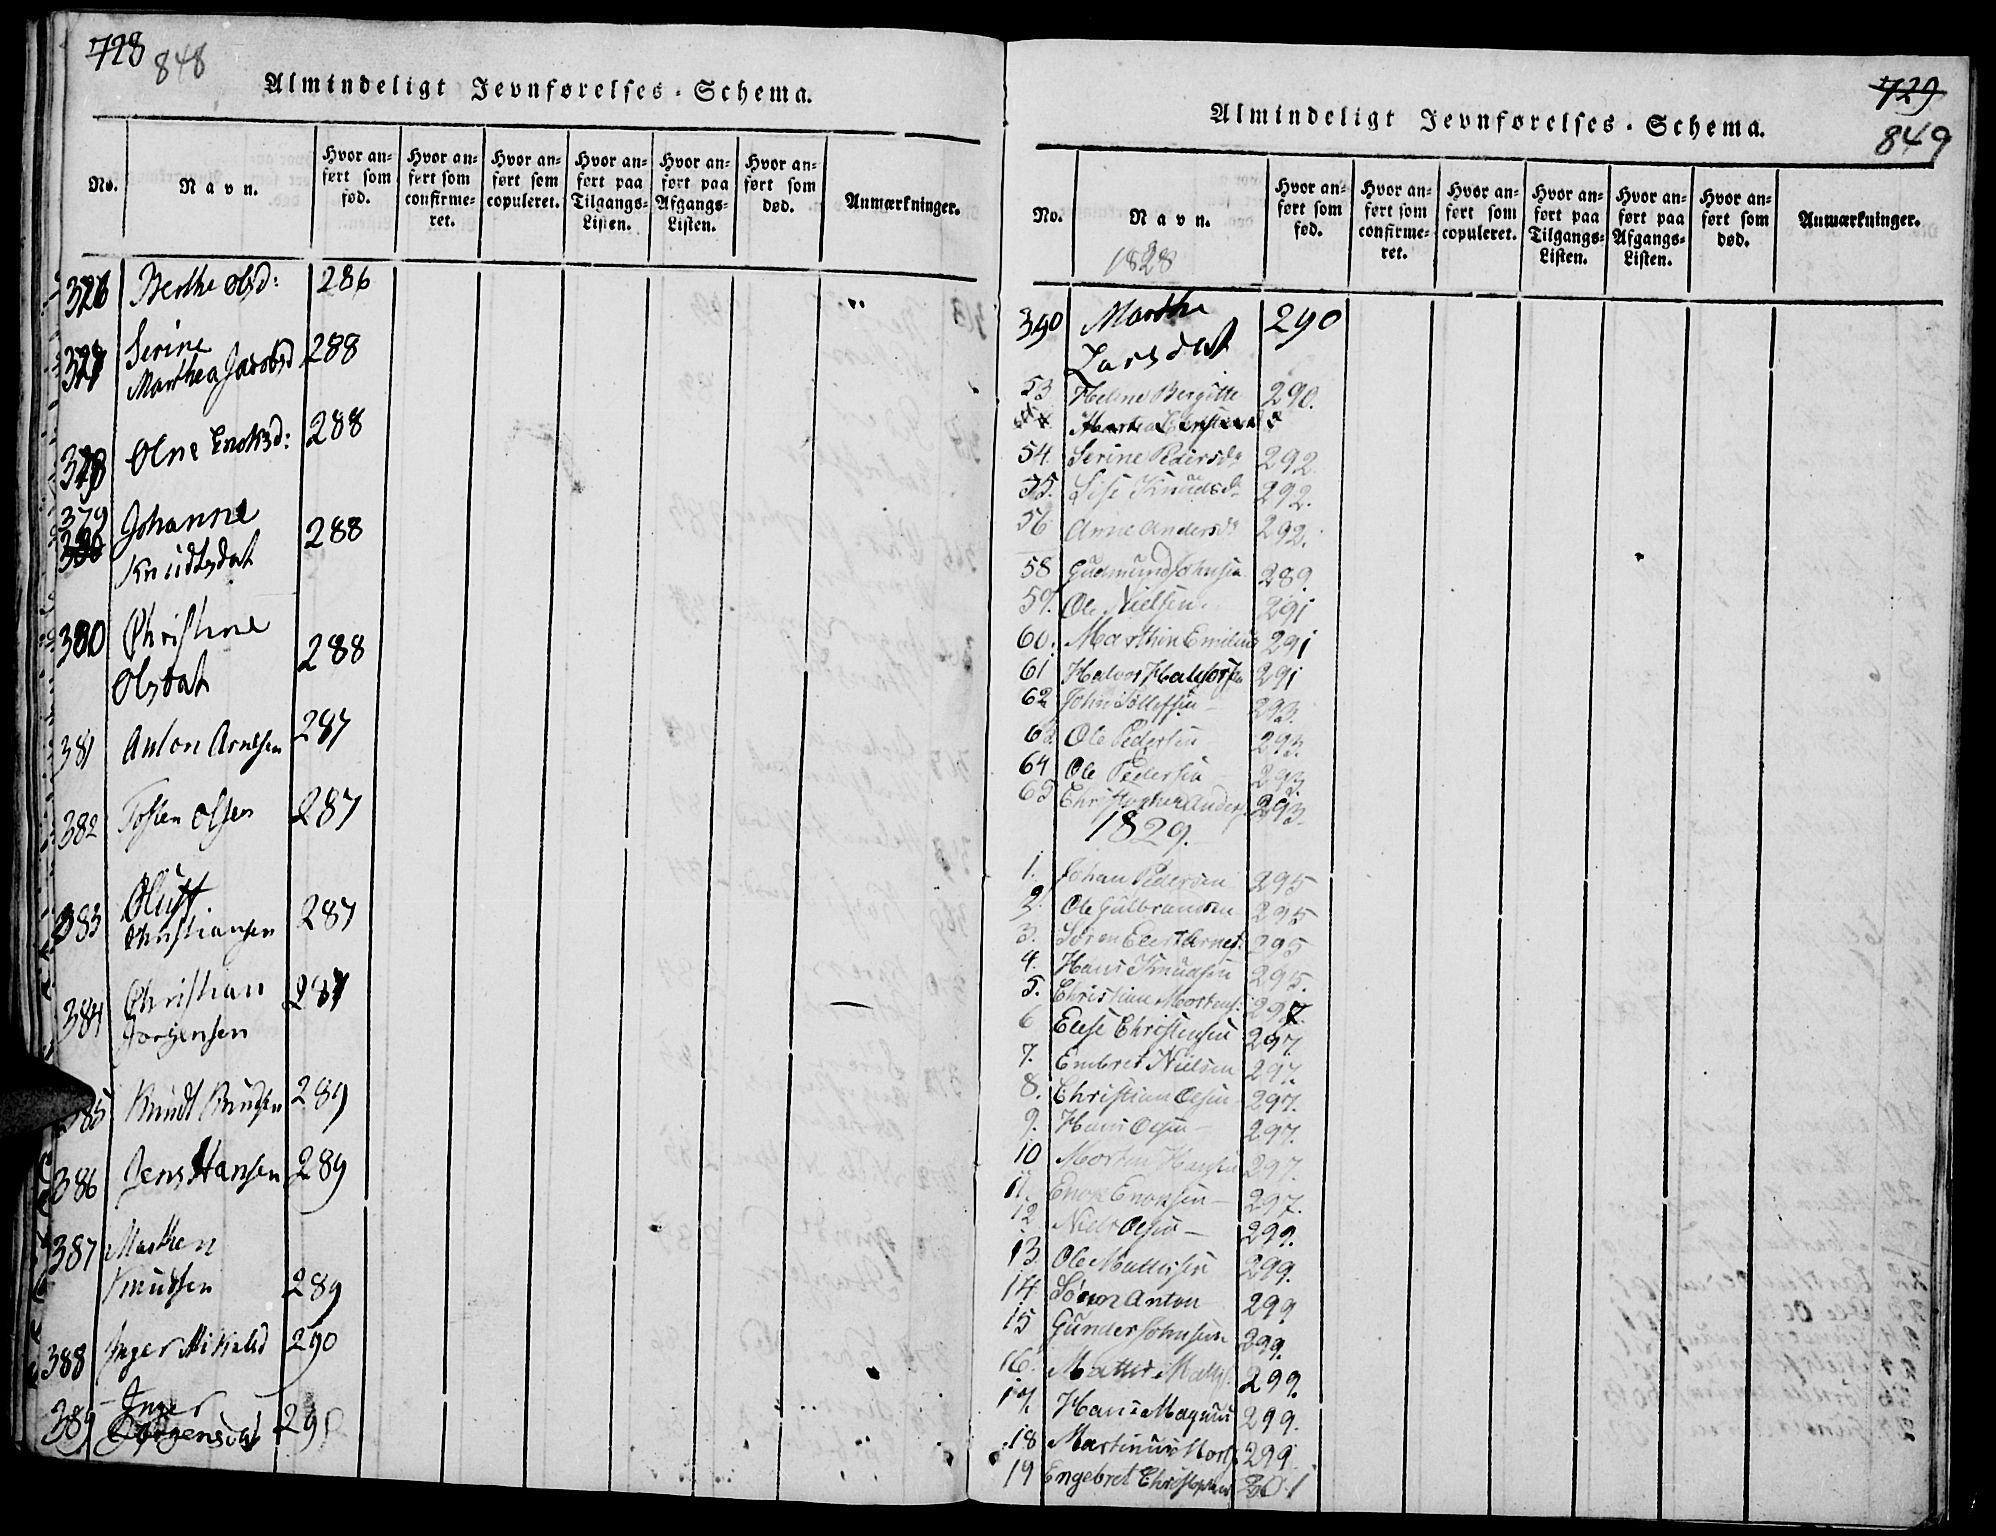 728
848
Almindeligt Jevnførelses-Schema.
No.
Navn.
Hvor an-
ført som
fød.
Hvor an-
ført som
confirme-
ret.
Hvor an-
ført som
copuleret.
Hvor an-
ført paa
Tilgangs-
Listen.
Hvor an-
ført paa
Afgangs-
Listen.
Hvor an-
ført som
død.
Anmærkninger.
Berthe Olsd: 286
Serine
Marthea Jacobsd 288
Olne Enoksd: 288
379 Johanne
Knudtsdat 288
380 Christine
Olsdat 288
381 Anton Arnesen 287
382 Tosten Olsen 287
383 Oluff
Christiansen 287
384 Christian
Jørgensen 287
385 Knudt Knudsen 289
386 Jens Hansen 289
387 Marthen
Knudsen 289
388 Inger Mikelsd 290
389 Inger
Jørgensdat 290
729
849
Almindeligt Jevnførelses-Schema.
No.
Navn.
Hvor an-
ført som
fød.
Hvor an-
ført som
confirme-
ret.
Hvor an-
ført som
copuleret.
Hvor an-
ført paa
Tilgangs-
Listen.
Hvor an-
ført paa
Afgangs-
Listen.
Hvor an-
ført som
død.
Anmærkninger.
1828
390 Marthe
Larsdat 290
53 Heline Birgitte 290.
54. Serine Pedersd 292
55. Lise Knudsd 292.
56 Anne Andersd 292.
58 Gudmund Johnsen 289.
59. Ole Nielsen 291
60. Marthin Emilius 291
61 Halvor Halvors 291
62 John Tollefsen 293.
63 Ole Pedersen 293.
64 Ole Pedersen 293.
65 Christopher Anders 293.
1829.
1. Johan Pedersen 295
2. Ole Gulbrandsen 295
3. Søren Elert Arnes. 295
4. Hans Knudsen 295.
5. Christian Mortens. 297.
6 Elise Christensen 297.
7. Embret Nielsen 297.
8. Christian Olsen 297.
9. Hans Olsen 297.
10 Morten Hansen 297.
11. Enok Enoksen 297.
12 Niels Olsen 299.
13. Ole Mathisen 299.
14 Søren Anton 299
15 Gunder Johnsen 299.
16. Mathis Mathis. 299.
17. Hans Magnus 299.
18 Martinus Mort. 299.
19 Engebret Christophers 301